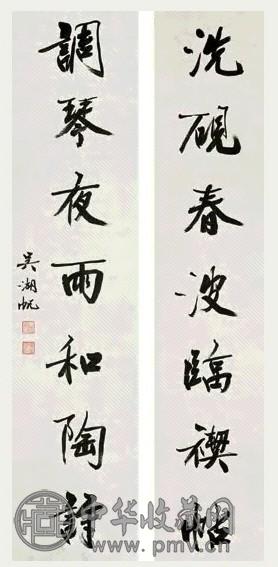 洗硯春波臨禊帖
調琴夜雨和陶詩
吳湖帆
中华收藏网
www.pmv.cn